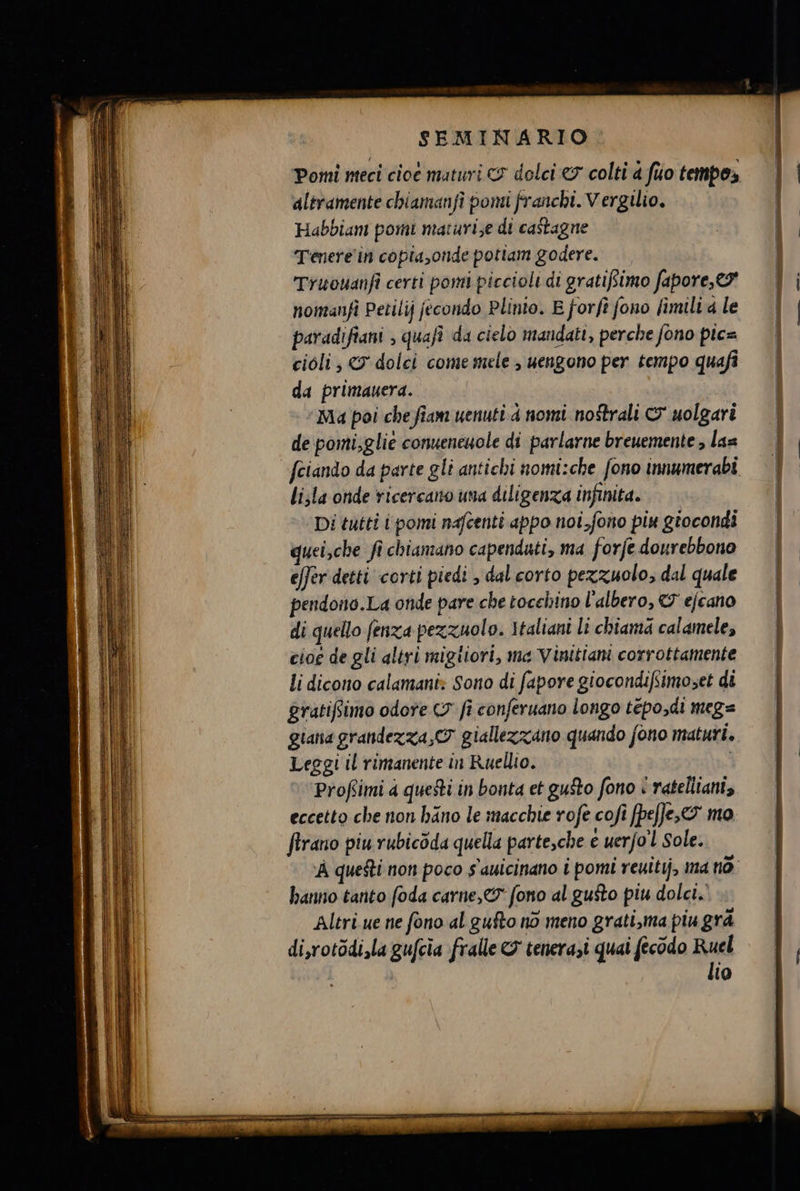 SEMINARIO
Pomi meci cioè maturi & dolci & colti à ſuo tempo,
altramente chiamanſi pomi franchi. Vergilio.
Habbiam pomi maturi,e di caſtagne
Tenere'in copia,onde potiam godere.
Truouanſi certi pomi piccioli di gratiſsimo ſapore,&
nomanſi Petilij ſecondo Plinio. E forſi ſono ſimili à le
paradiſiani , quaſi da cielo mandati, perche ſono pic=
cioli , & dolci come mele , uengono per tempo quaſi
da primauera.
Ma poi che ſiam uenuti à nomi noſtrali & uolgari
de pomi,gliè conueneuole di parlarne breuemente , la=
ſciando da parte gli antichi nomi:che ſono innumerabi
li,la onde ricercano una diligenza infinita.
Di tutti i pomi naſcenti appo noi,ſono piu giocondi
quei,che ſi chiamano capenduti, ma forſe dourebbono
eſſer detti corti piedi , dal corto pezzuolo, dal quale
pendono.La onde pare che tocchino l'albero, & eſcano
di quello ſenza pezzuolo. Italiani li chiamā calamele,
cioè de gli altri migliori, ma Vinitiani corrottamente
li dicono calamani: Sono di ſapore giocondiſsimo,et di
gratiſsimo odore & ſi conſeruano longo tēpo,di meg=
giana grandezza,& giallezzano quando ſono maturi.
Leggi il rimanente in Ruellio.
Proſsimi à queſti in bonta et guſto ſono i ratelliani,
eccetto che non hāno le macchie roſe coſi ſpeſſe,& mo
ſtrano piu rubicōda quella parte,che è uerſo'l Sole.
A queſti non poco s'auicinano i pomi reuitij, ma nō
hanno tanto ſoda carne,& ſono al guſto piu dolci.
Altri ue ne ſono al guſto nō meno grati,ma piu grā
di,rotōdi,la guſcia fralle & tenera,i quai ſecōdo Ruel
lio